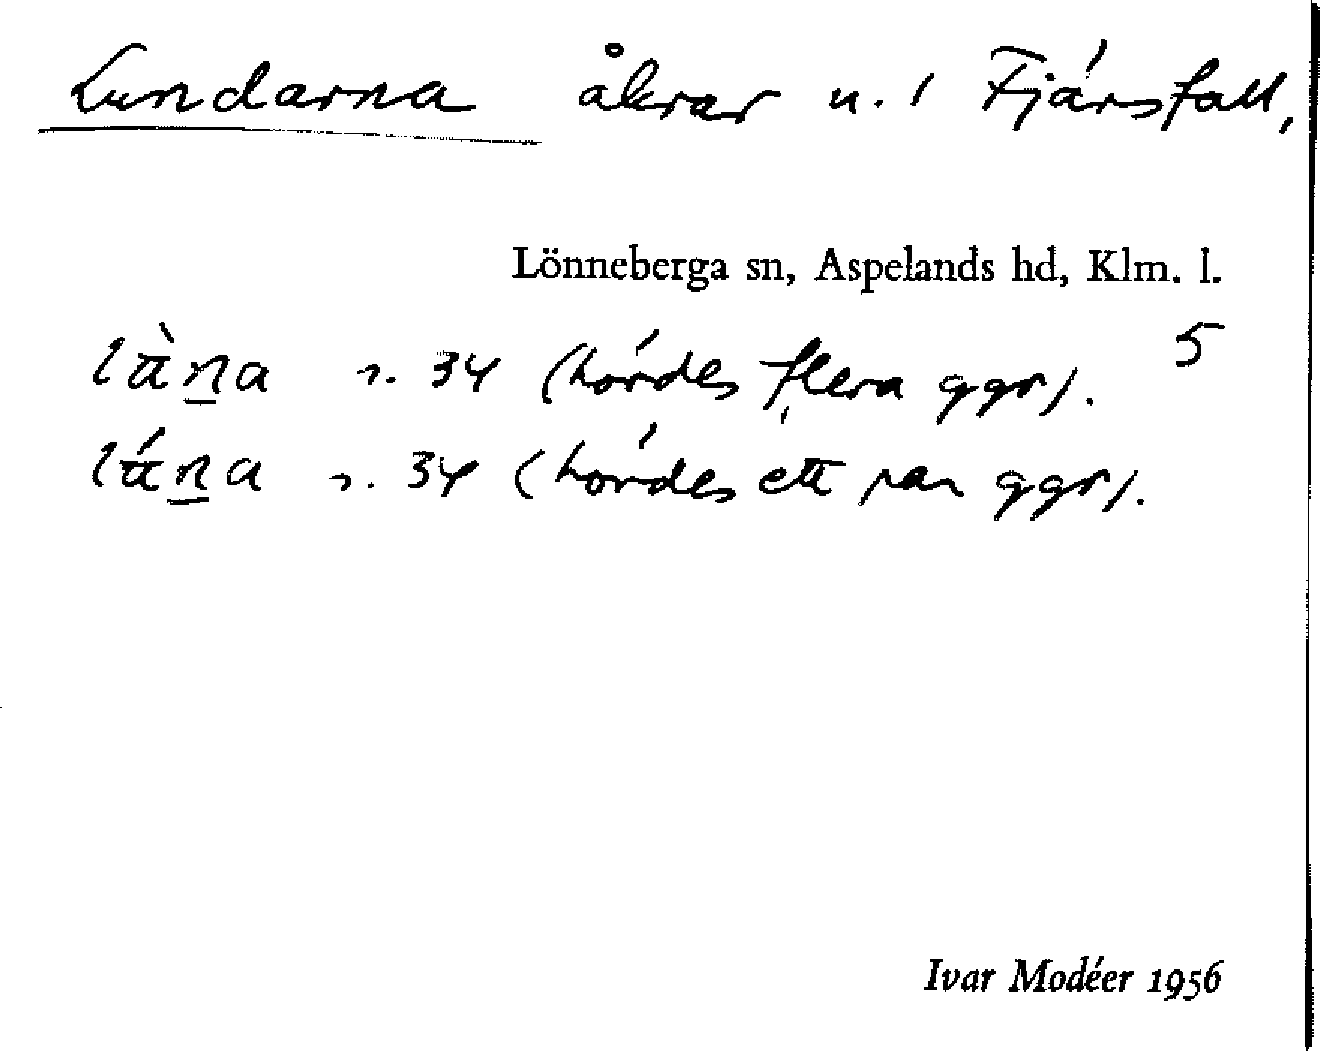 Lundarna åkrar u. / Fjärsfall,
Lönneberga sn, Aspelands hd, Klm. l.
5
s. 34 (hördes flera ggr).
s. 34 (hördes ett par ggr).
Ivar Modéer 1956